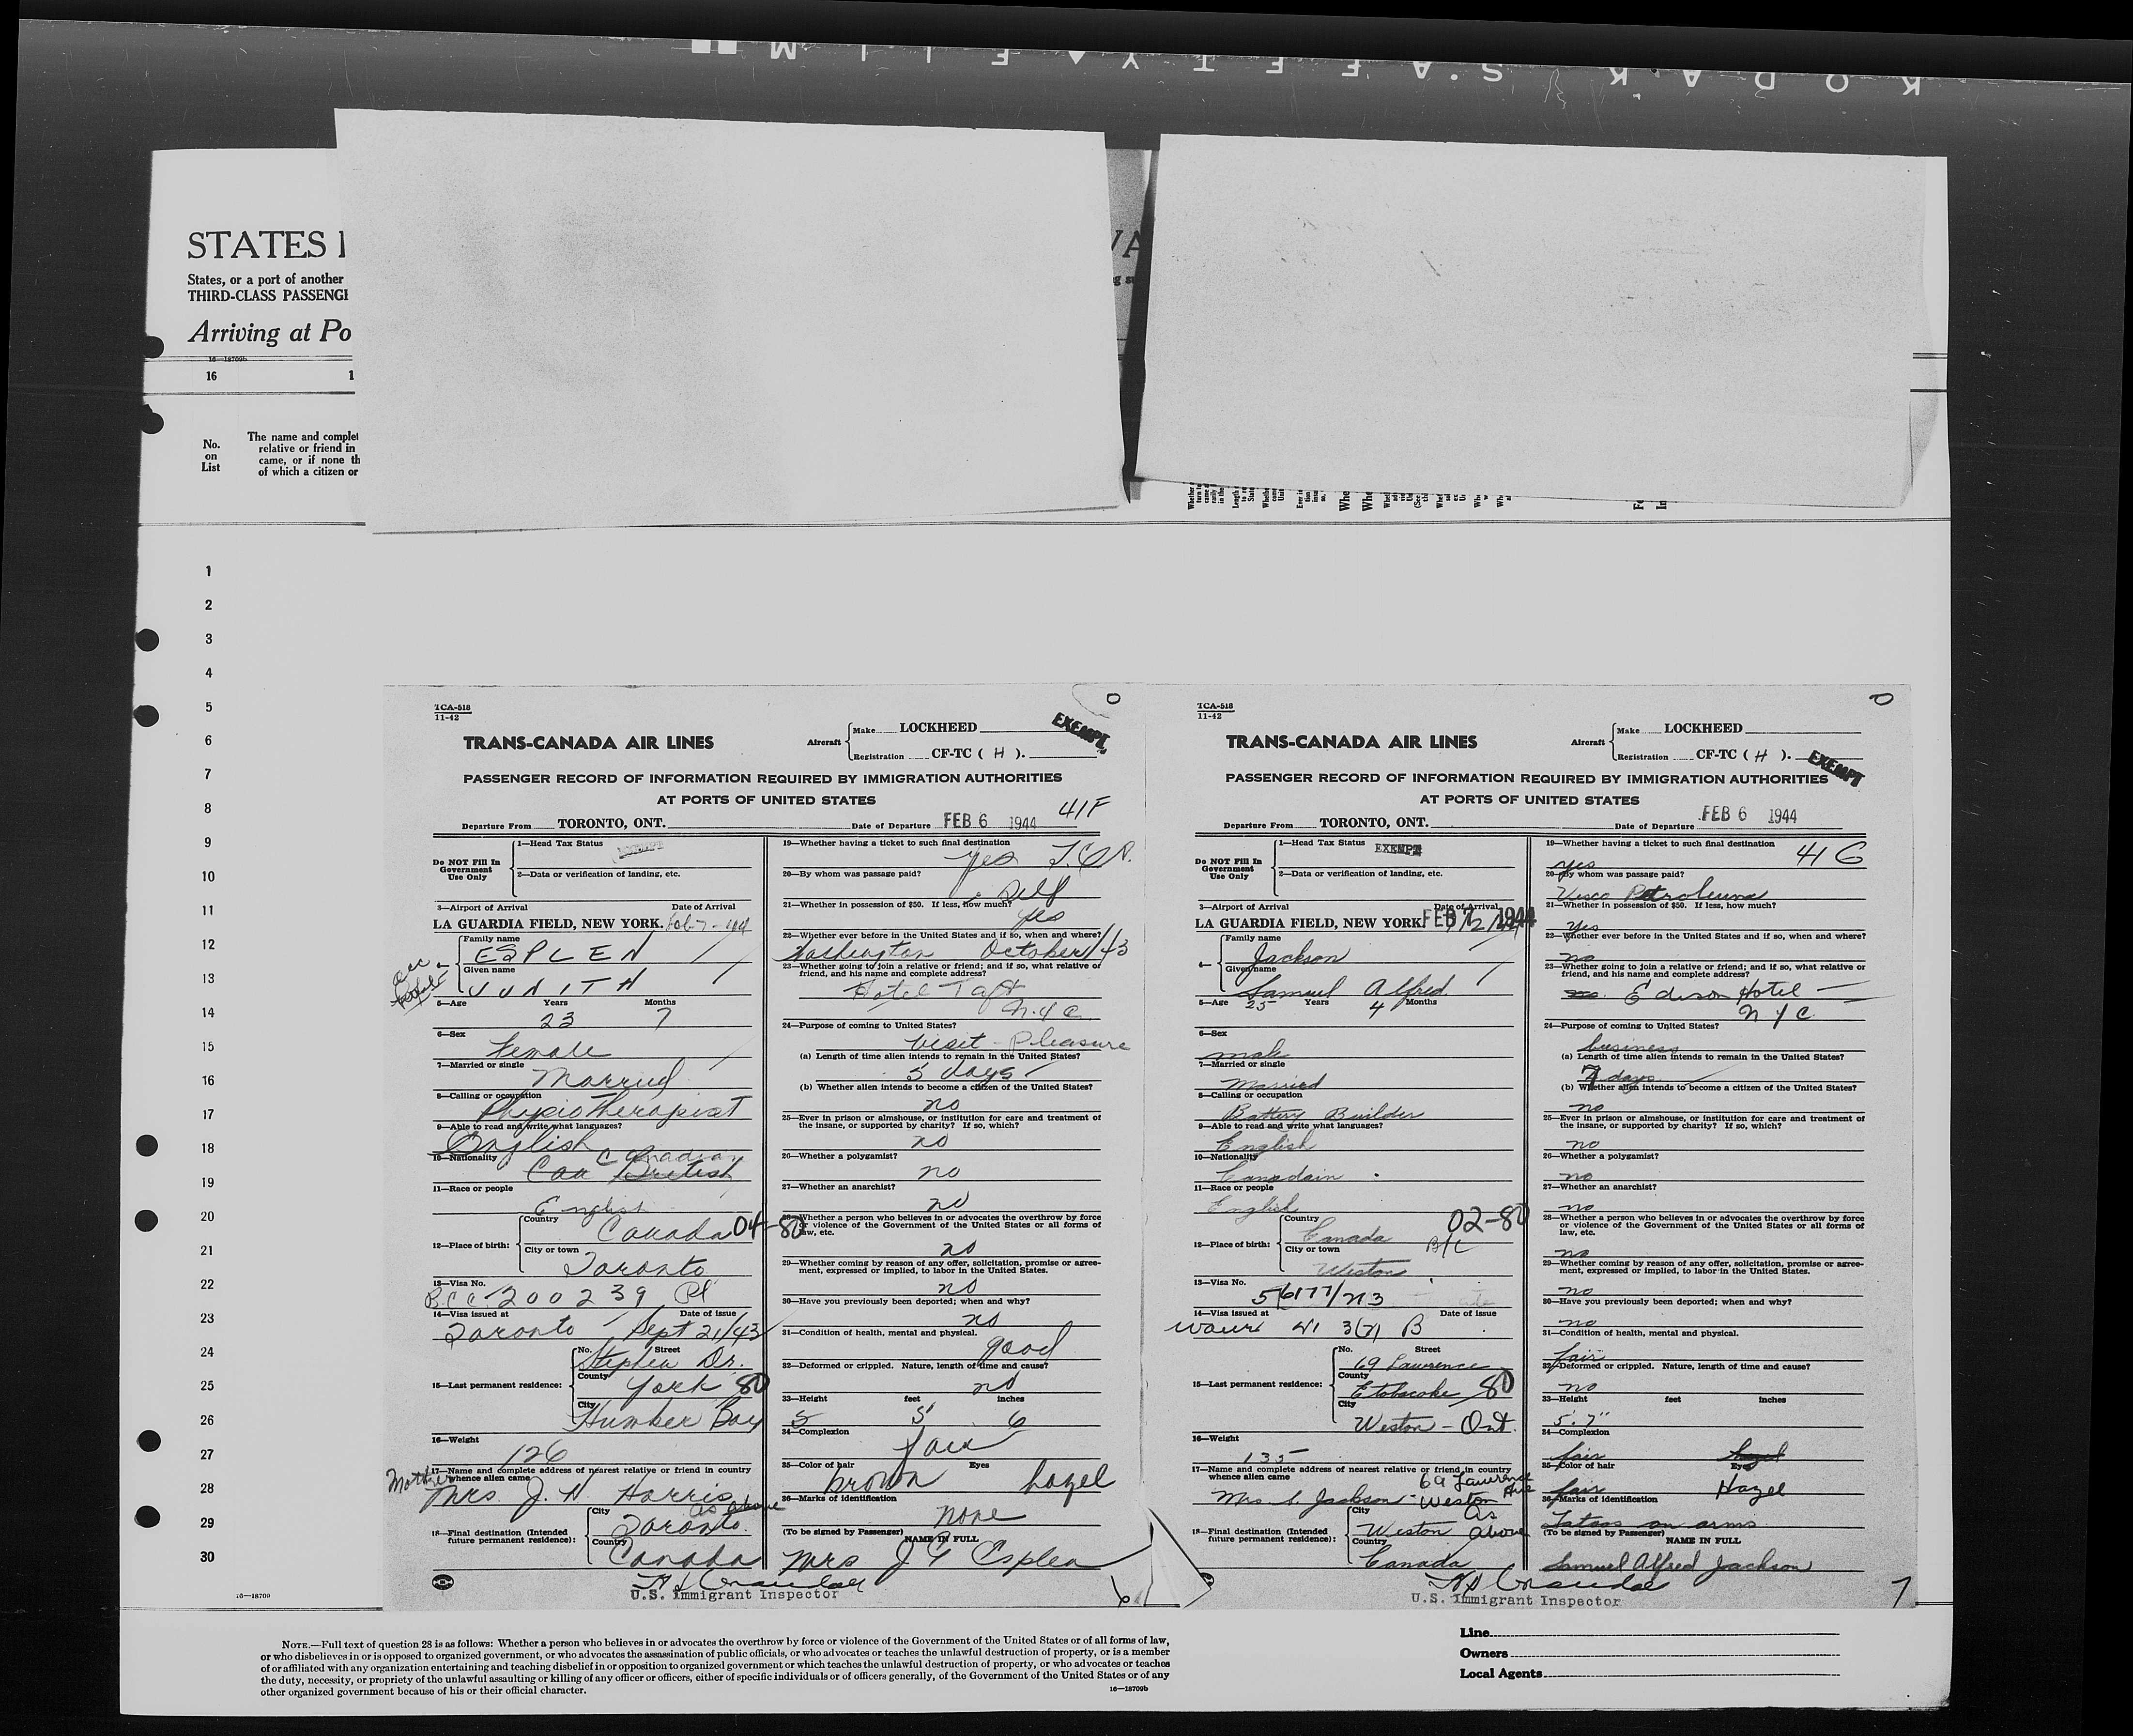 KODAK SAFETY FILM
STATES
States, or a port of another
THIRD-CLASS PASSENG
Arriving at Po
16—18709b
16
No.
on
List
The name and complet
relative or friend in
came, or if none th
of which a citizen or
1
2
3
4
5
6
7
8
9
10
11
12
13
14
15
16
17
18
19
20
21
22
23
24
25
26
27
28
29
30
16—18709
TCA-518
11-42
TRANS-CANADA AIR LINES
Aircraft
Make LOCKHEED
Registration CF-TC ( H ).
EXEMPT
PASSENGER RECORD OF INFORMATION REQUIRED BY IMMIGRATION AUTHORITIES
AT PORTS OF UNITED STATES
41F
Departure From TORONTO, ONT. Date of Departure FEB 6 1944
Do NOT Fill In
Government
Use Only
1—Head Tax Status EXEMPT
2—Data or verification of landing, etc.
3—Airport of Arrival Date of Arrival
LA GUARDIA FIELD, NEW YORK.
Family name
ESPLEN
Given name
JUNITH
5—Age Years Months
23 7
6—Sex
Female
7—Married or single
Married
8—Calling or occupation
Physiotherapist
9—Able to read and write what languages?
English
10—Nationality
Canadian
British
11—Race or people
English
12—Place of birth:
Country
Canada 04-80
City or town
Toronto
13—Visa No.
B.C.C. 200239
14—Visa issued at Date of issue
Toronto Sept 21/43
15—Last permanent residence:
No. Street
Stephen Dr.
County
York 80
City
Humber Bay
16—Weight
126
17—Name and complete address of nearest relative or friend in country
whence alien came
Mother
Mrs J. H. Harris
as above
18—Final destination (Intended
future permanent residence):
City
Toronto.
Country
Canada
19—Whether having a ticket to such final destination
yes
20—By whom was passage paid?
Self
21—Whether in possession of $50. If less, how much?
yes
22—Whether ever before in the United States and if so, when and where?
Washington October/43
23—Whether going to join a relative or friend; and if so, what relative or
friend, and his name and complete address?
Hotel Taft
N.Y.C.
24—Purpose of coming to United States?
Visit - Pleasure
(a) Length of time alien intends to remain in the United States?
5 days
(b) Whether alien intends to become a citizen of the United States?
no
25—Ever in prison or almshouse, or institution for care and treatment of
the insane, or supported by charity? If so, which?
no
26—Whether a polygamist?
no
27—Whether an anarchist?
no
28—Whether a person who believes in or advocates the overthrow by force
or violence of the Government of the United States or all forms of
law, etc.
no
29—Whether coming by reason of any offer, solicitation, promise or agree-
ment, expressed or implied, to labor in the United States.
no
30—Have you previously been deported; when and why?
no
31—Condition of health, mental and physical.
good
32—Deformed or crippled. Nature, length of time and cause?
no
33—Height feet inches
5 5' 6
34—Complexion
fair
35—Color of hair Eyes
brown hazel
36—Marks of identification
none
(To be signed by Passenger)
NAME IN FULL
Mrs J G Esplen
U.S. Immigrant Inspector
6
TCA-518
11-42
TRANS-CANADA AIR LINES
Aircraft
Make LOCKHEED
Registration CF-TC ( H ).
EXEMPT
PASSENGER RECORD OF INFORMATION REQUIRED BY IMMIGRATION AUTHORITIES
AT PORTS OF UNITED STATES
Departure From TORONTO, ONT. Date of Departure FEB 6 1944
Do NOT Fill In
Government
Use Only
1—Head Tax Status EXEMPT
2—Data or verification of landing, etc.
3—Airport of Arrival Date of Arrival
LA GUARDIA FIELD, NEW YORK. FEB 7 1944
Family name
Jackson
Given name
Samuel Alfred
5—Age Years Months
25 4
6—Sex
male
7—Married or single
Married
8—Calling or occupation
Battery Builder
9—Able to read and write what languages?
English
10—Nationality
Canadain
11—Race or people
English
12—Place of birth:
Country
Canada 02-80
B/C
City or town
Weston
13—Visa No.
14—Visa issued at Date of issue
15—Last permanent residence:
No. Street
69 Lawrence
County
Etobicoke 80
City
Weston - Ont.
16—Weight
135
17—Name and complete address of nearest relative or friend in country
whence alien came
69 Lawrence Ave
Mrs S. Jackson - Weston
18—Final destination (Intended
future permanent residence):
City
Weston as above
Country
Canada
19—Whether having a ticket to such final destination
yes
41G
20—By whom was passage paid?
Visco Petroleum
21—Whether in possession of $50. If less, how much?
yes
22—Whether ever before in the United States and if so, when and where?
no
23—Whether going to join a relative or friend; and if so, what relative or
friend, and his name and complete address?
no. Edison Hotel
N Y C
24—Purpose of coming to United States?
business
(a) Length of time alien intends to remain in the United States?
7 days
(b) Whether alien intends to become a citizen of the United States?
no
25—Ever in prison or almshouse, or institution for care and treatment of
the insane, or supported by charity? If so, which?
no
26—Whether a polygamist?
no
27—Whether an anarchist?
no
28—Whether a person who believes in or advocates the overthrow by force
or violence of the Government of the United States or all forms of
law, etc.
no
29—Whether coming by reason of any offer, solicitation, promise or agree-
ment, expressed or implied, to labor in the United States.
no
30—Have you previously been deported; when and why?
no
31—Condition of health, mental and physical.
fair
32—Deformed or crippled. Nature, length of time and cause?
no
33—Height feet inches
5' 7"
34—Complexion
fair hazel
35—Color of hair Eyes
fair Hazel
36—Marks of identification
Tatoos on arms
(To be signed by Passenger)
NAME IN FULL
Samuel Alfred Jackson
U.S. Immigrant Inspector
7
NOTE.—Full text of question 28 is as follows: Whether a person who believes in or advocates the overthrow by force or violence of the Government of the United States or of all forms of law,
or who disbelieves in or is opposed to organized government, or who advocates the assassination of public officials, or who advocates or teaches the unlawful destruction of property, or is a member
of or affiliated with any organization entertaining and teaching disbelief in or opposition to organized government or which teaches the unlawful destruction of property, or who advocates or teaches
the duty, necessity, or propriety of the unlawful assaulting or killing of any officer or officers, either of specific individuals or of officers generally, of the Government of the United States or of any
other organized government because of his or their official character.
16—18709b
Line
Owners
Local Agents